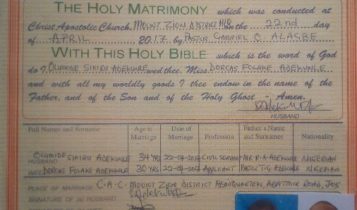 THE HOLY MATRIMONY which was conducted at
Christ Apostolic Church, MOUNT ZION DISTRICT HQ on the 22nd day
of APRIL 2017 by PASTOR GABRIEL O. ALAGBE
WITH THIS HOLY BIBLE which is the word of God
do I OLUMIDE SIMIRU ADEKUNLE wed thee. Miss DORCAS FOLAKE ADEKUNLE
and with all my worldly goods I thee endow in the name of the
Father, and of the Son and of the Holy Ghost - Amen.
HUSBAND
Full Names and Surname Age at Marriage Date of Marriage Profession Father's Name and Surname Nationality
OLUMIDE ADEKUNLE 34 YRS 22-04-2017 CIVIL SERVANT ADEKUNLE NIGERIAN
DORCAS FOLAKE ADEKUNLE 30 YRS 22-04-2017 APPLICANT NIGERIAN
PLACE OF MARRIAGE C.A.C. MOUNT ZION DISTRICT HEADQUARTERS, ROAD, JOS
SIGNATURE OF HUSBAND